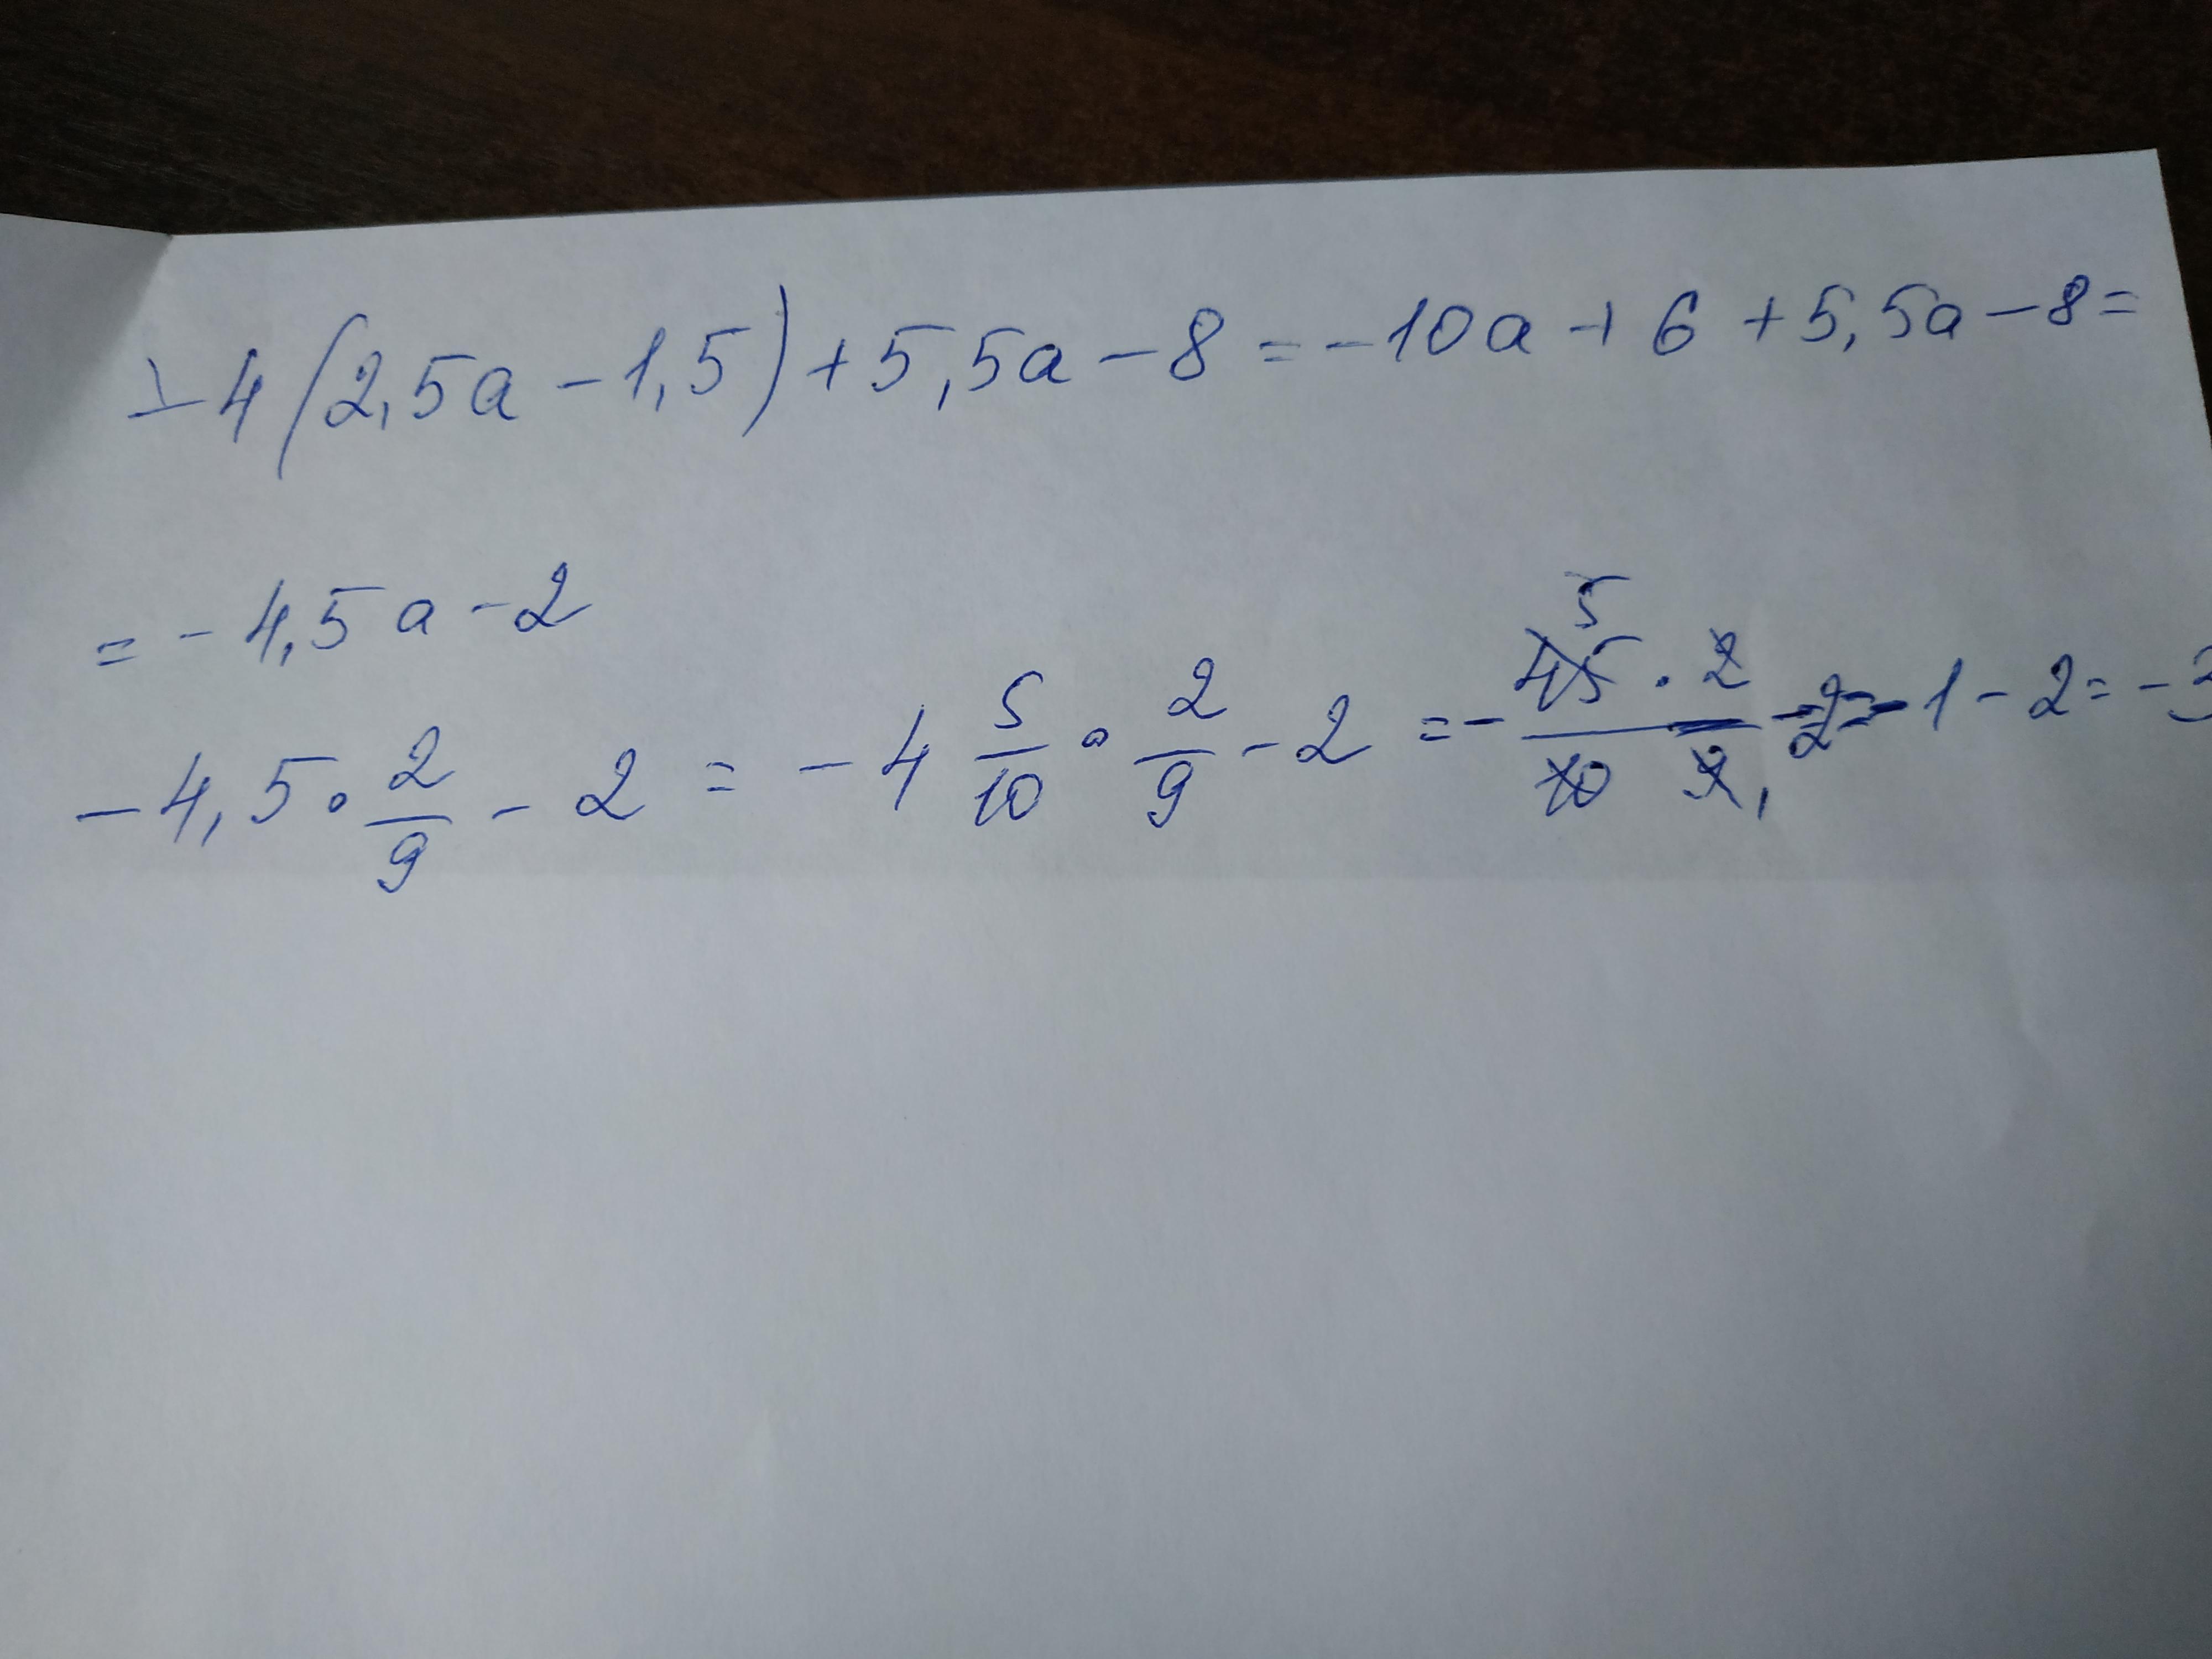 -4(2,5a-1,5)+5,5a-8=-10a+6+5,5a-8=
=-4,5a-2
-4,5·2/9-2=-4 5/10·2/9-2=-45·2/10 9-2=-1-2=-3